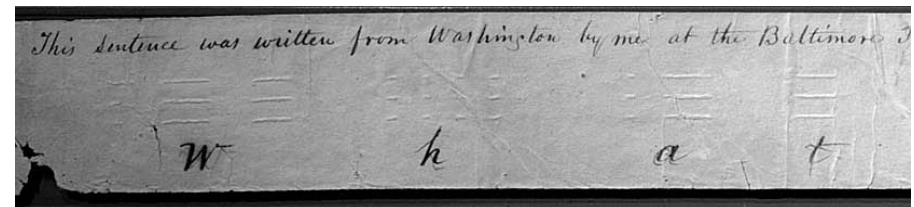 This sentence was written from Washington by me at the Baltimore
W h a t